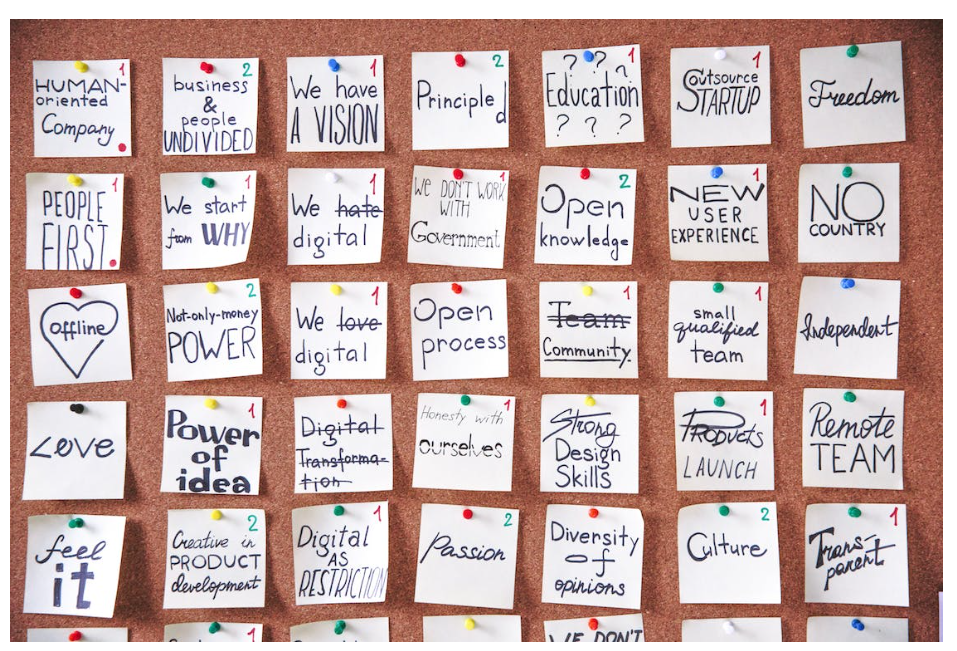 HUMAN-
oriented
Company.
1
business
&
people
UNDIVIDED
2
We have
A VISION
1
Principled
2
? ? ?
Education
? ? ?
1
Outsource
STARTUP
1
Freedom
PEOPLE
FIRST.
1
We start
from WHY
1
We hate
digital
1
WE DON'T WORK
WITH
Government
1
Open
knowledge
2
NEW
USER
EXPERIENCE
1
NO
COUNTRY
offline
Not-only-money
POWER
2
We love
digital
1
Open
process
Team
Community.
1
small
qualified
team
1
Independent
Love
Power
of
idea
1
Digital
Transforma-
tion
Honesty with
ourselves
1
Strong
Design
Skills
Products
LAUNCH
1
Remote
TEAM
feel
it
Creative in
PRODUCT
development
2
Digital
AS
RESTRICTION
1
Passion
2
Diversity
of
opinions
Culture
2
Trans-
parent
1
1
1
WE DON'T